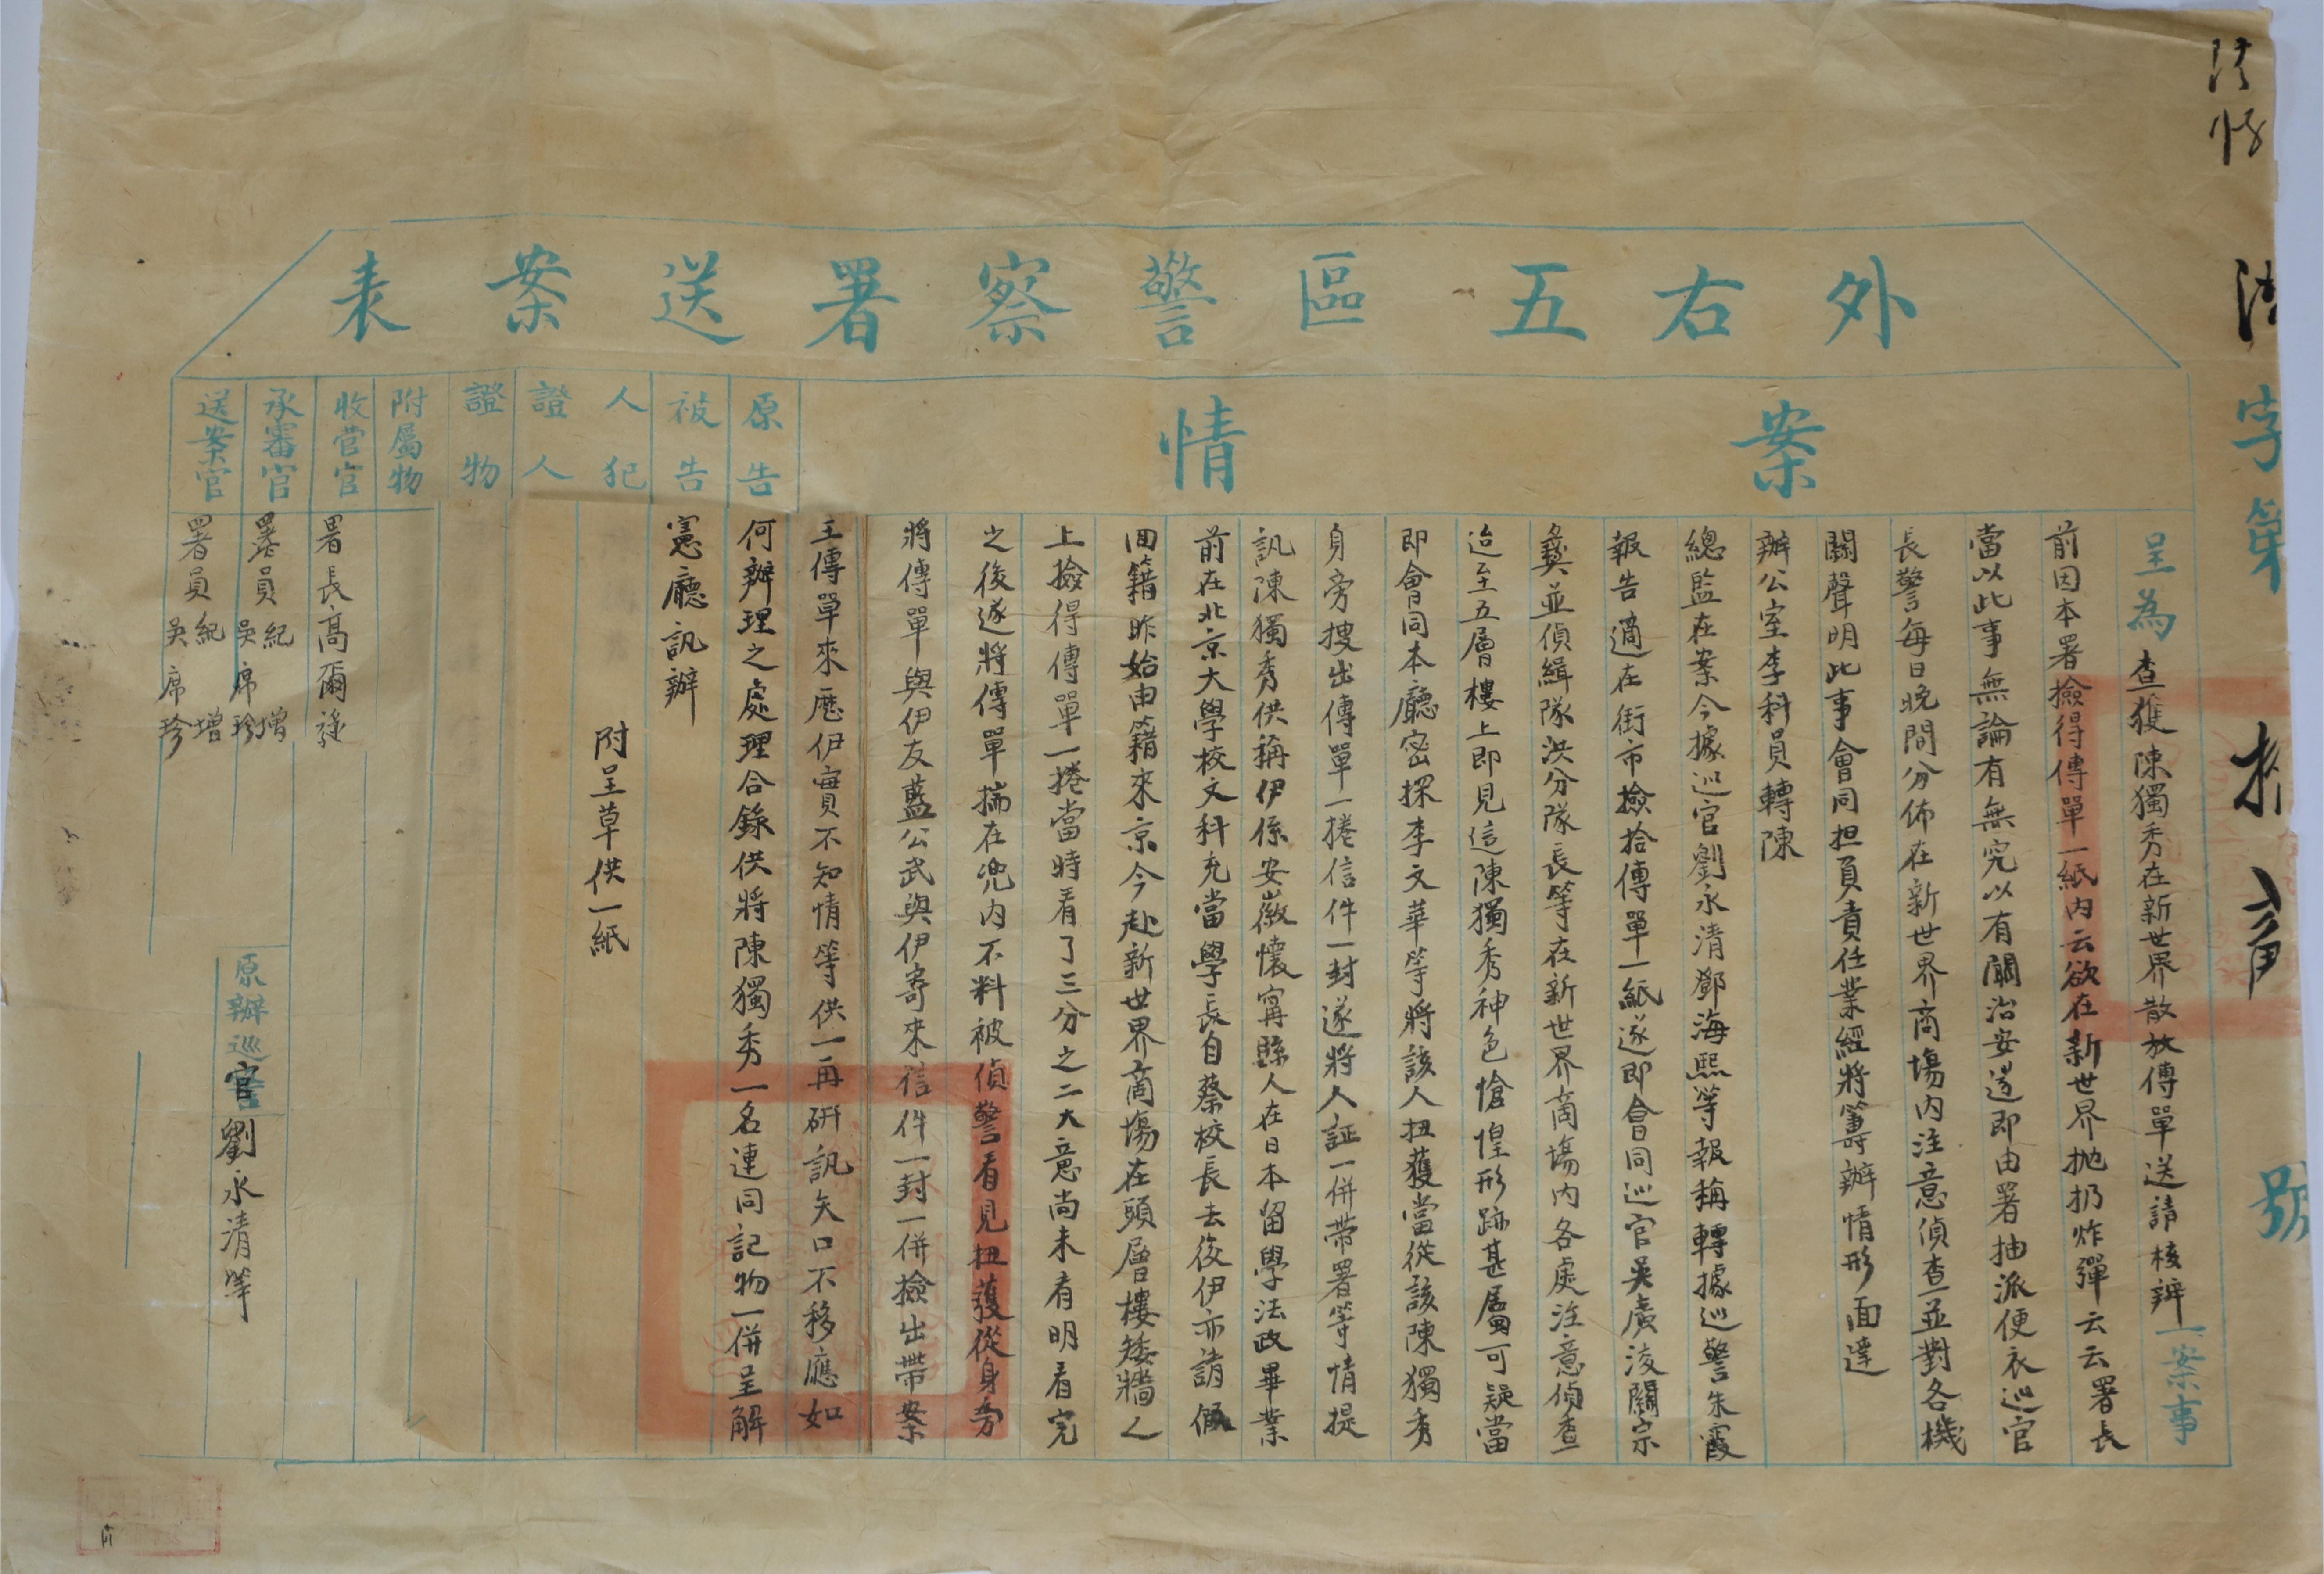 字第
號
外右五區警察署送案表
案情
呈為查獲陳獨秀在新世界散放傳單送請核辦一案事
前因本署撿得傳單一紙內云欲在新世界拋扔炸彈云云署長
當以此事無論有無究以有關治安遂即由署抽派便衣巡官
長警每日晚間分佈在新世界商場內注意偵查並對各機
關聲明此事會同担負責任業經將籌辦情形面達
辦公室李科員轉陳
總監在案今據巡官劉永清鄧海熙等報稱轉據巡警朱霞
報告適在街市撿拾傳單一紙遂即會同巡官吳廣淩關宗
彝並偵緝隊洪分隊長等在新世界商場內各處注意偵查
迨至五層樓上即見這陳獨秀神色愴惶形跡甚屬可疑當
即會同本廳密探李文華等將該人扭獲當從該陳獨秀
身旁搜出傳單一捲信件一封遂將人証一併帶署等情提
訊陳獨秀供稱伊係安徽懷甯縣人在日本留學法政畢業
前在北京大學校文科充當學長自蔡校長去後伊亦請假
回籍昨始由籍來京今赴新世界商場在頭層樓矮牆人
上撿得傳單一捲當時看了三分之二大意尚未有明看完
之後遂將傳單揣在兜內不料被偵警看見扭獲從身旁
將傳單與伊友藍公武與伊寄來信件一封一併撿出帶案
至傳單來歷伊實不知情等供一再研訊矢口不移應如
何辦理之處理合錄供將陳獨秀一名連同記物一併呈解
憲廳訊辦
附呈草供一紙
原告
被告
人犯
證人
證物
附屬物
收管官
署長高爾祿
承審官
署員紀增
吳席珍
送案官
署員紀增
吳席珍
原辦巡官警
劉永清等